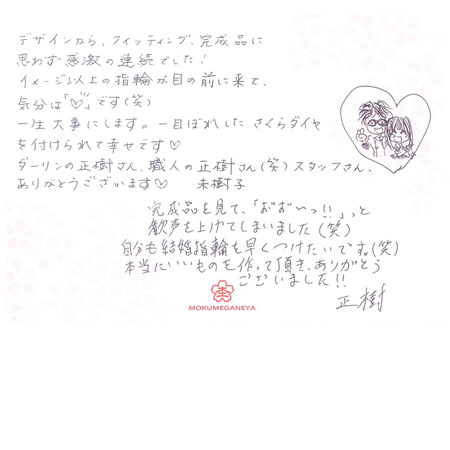 デザインから、フィッティング、完成品に
思わず感激の連続でした!
イメージ以上の指輪が目の前に来て、
気分は「♡」です(笑)
一生大事にします。一目ぼれしたさくらダイヤ
を付けられて幸せです♡
ダーリンの正樹さん、職人の正樹さん(笑)スタッフさん、
ありがとうございます♡ 未樹子
完成品を見て、「おぉぉいっ!!」っと
歓声を上げてしまいました(笑)
自分も結婚指輪を早くつけたいです。(笑)
本当にいいものを作って頂き、ありがとう
ございました!!
正樹
MOKUMEGANEYA